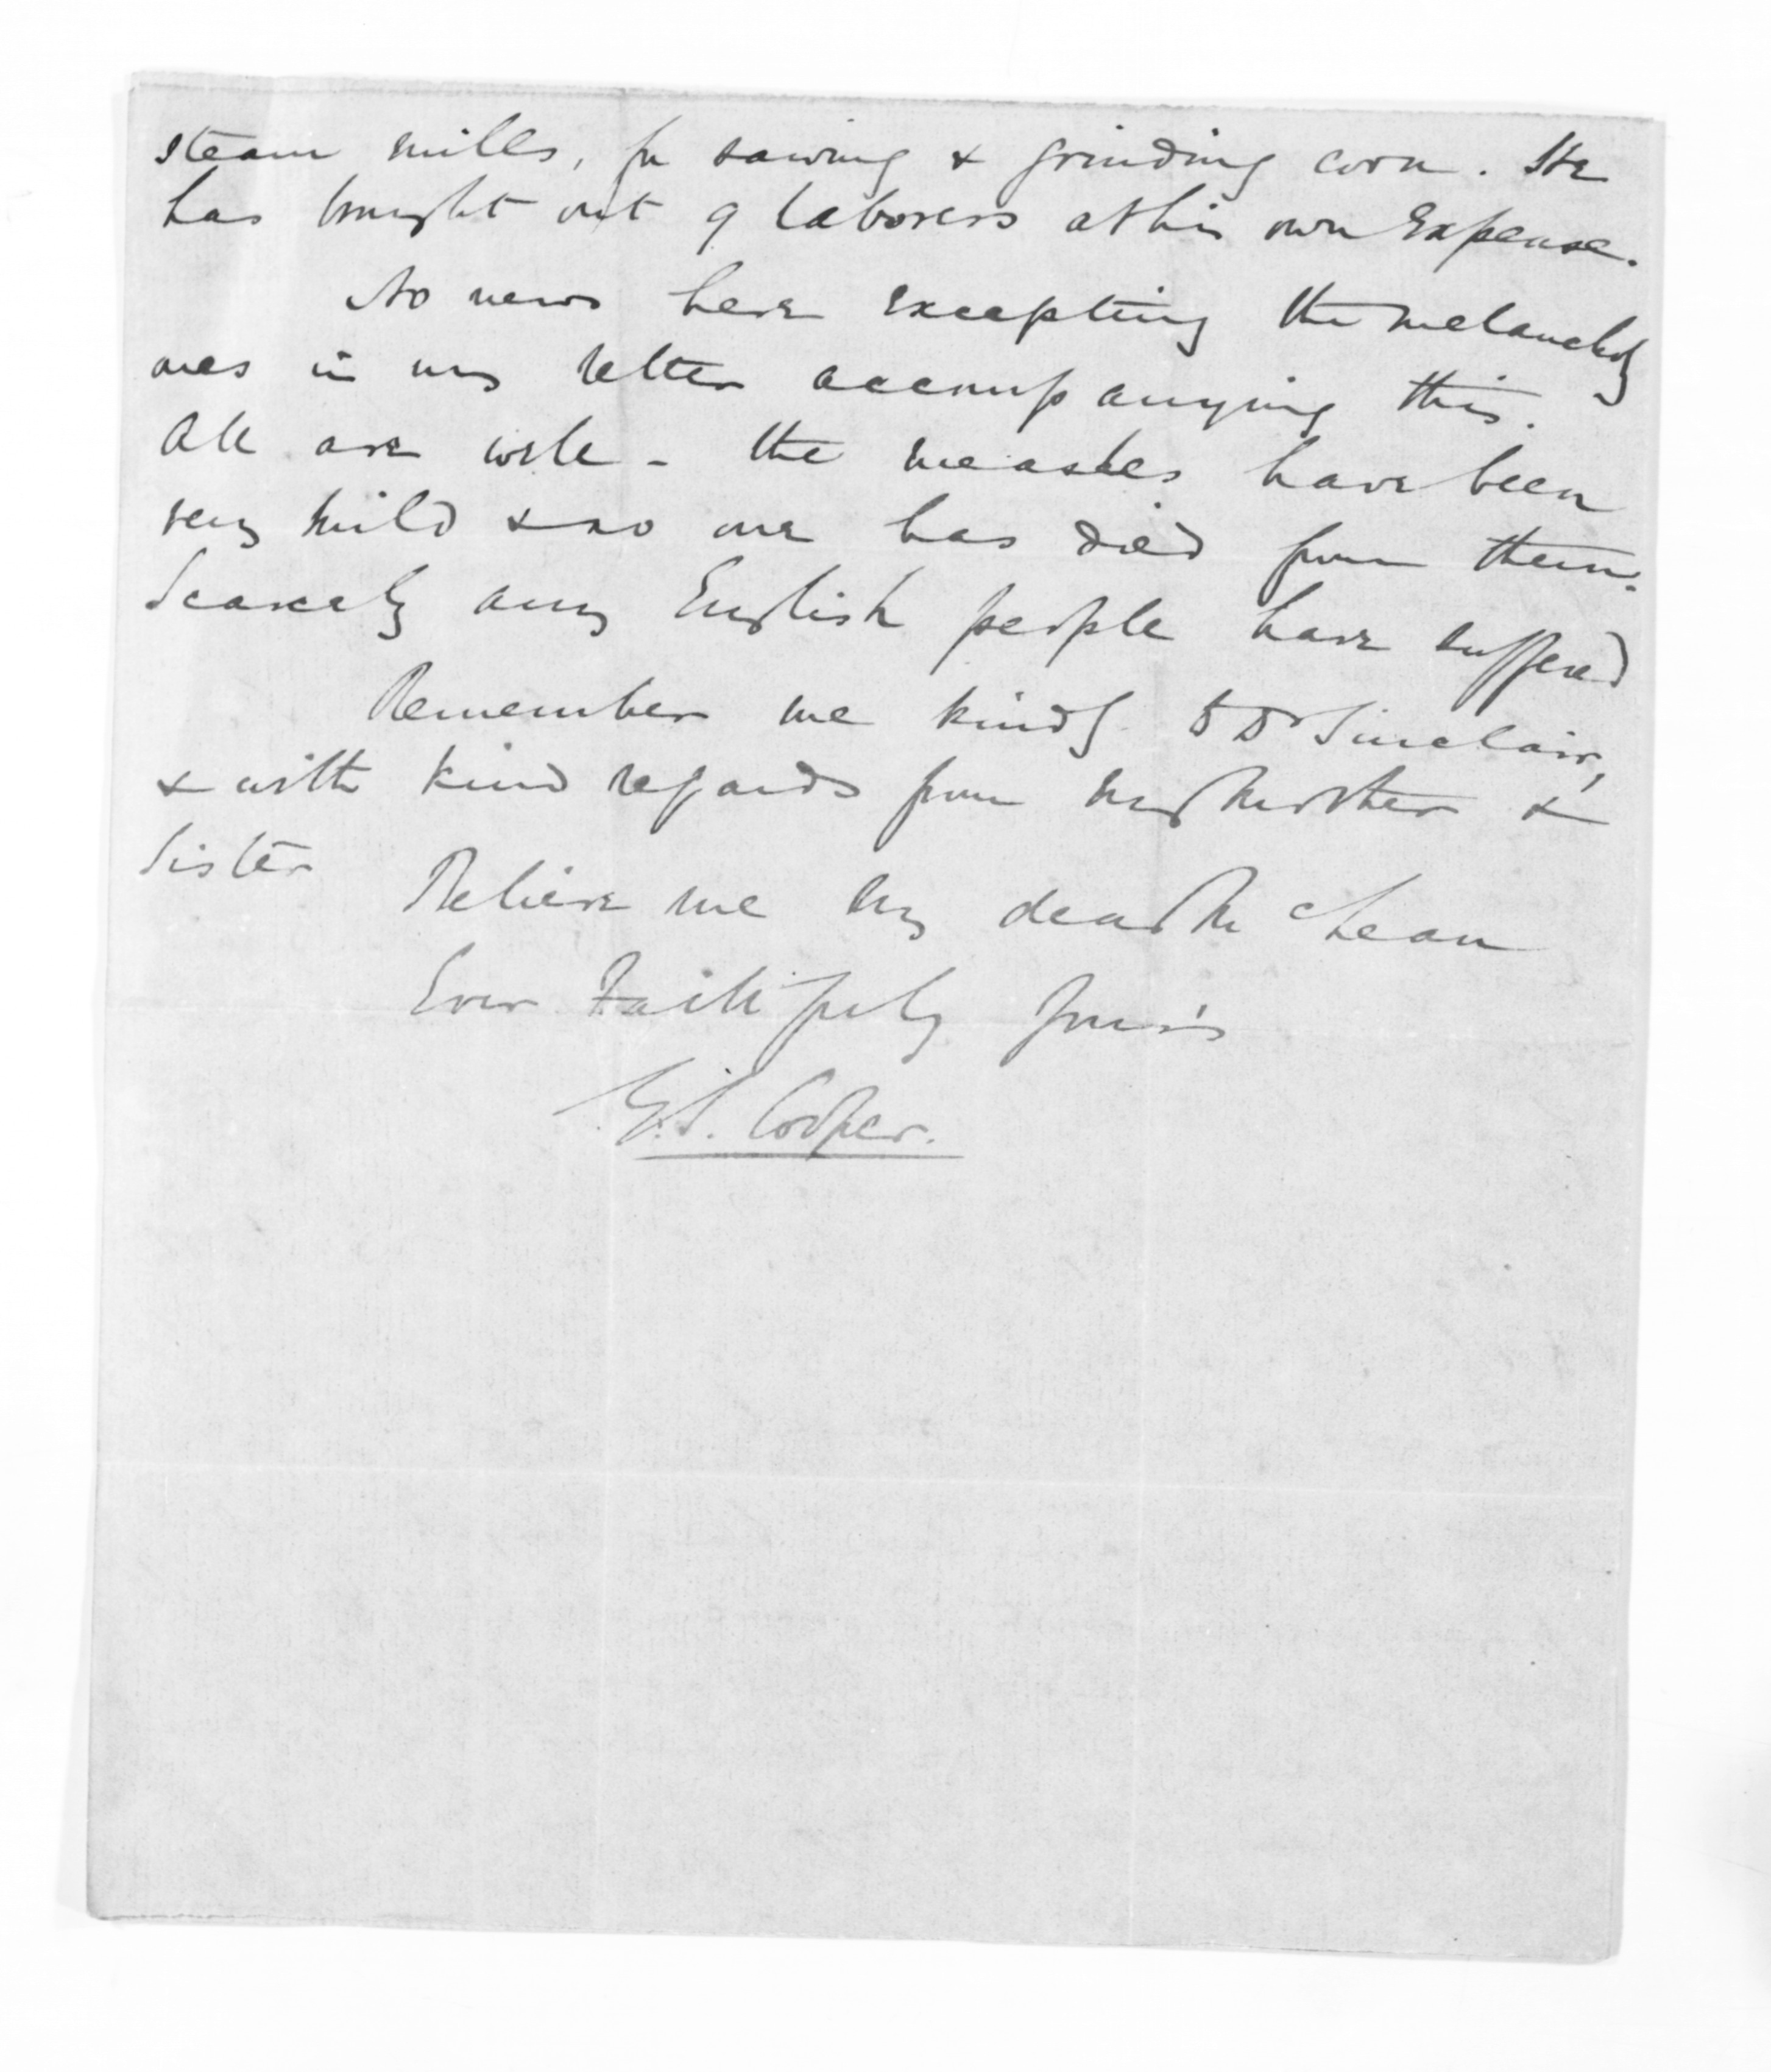 steam mills, for sawing & grinding corn. He
has brought out 9 laborers at his own expense.
No news here excepting the melancholy
ones in my letter accompanying this.
All are well - the measles have been
very mild & no one has died from them.
Scarcely any English people have suffered
Remember me kindly to Dr Sinclair,
& with kind regards from my Mother &
Sister
Believe me my dear McLean
Ever Faithfully Your's
G.S. Cooper.